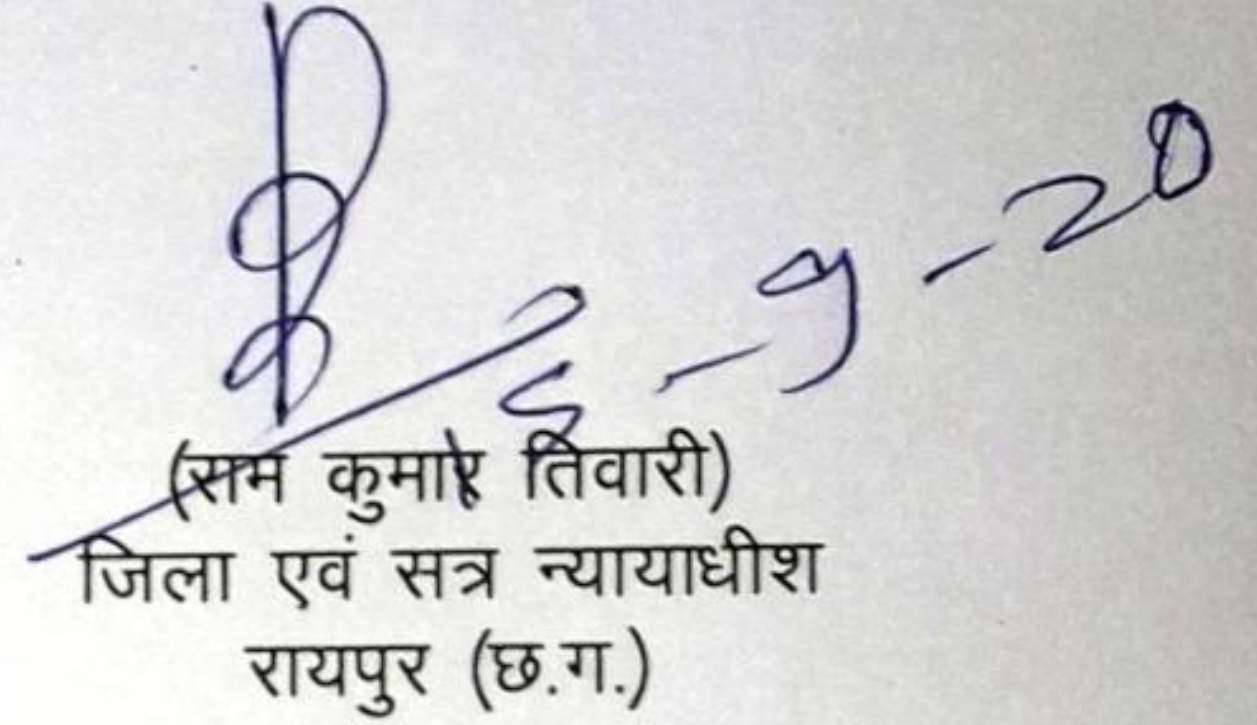 5-9-20
(राम कुमार तिवारी)
जिला एवं सत्र न्यायाधीश
रायपुर (छ.ग.)